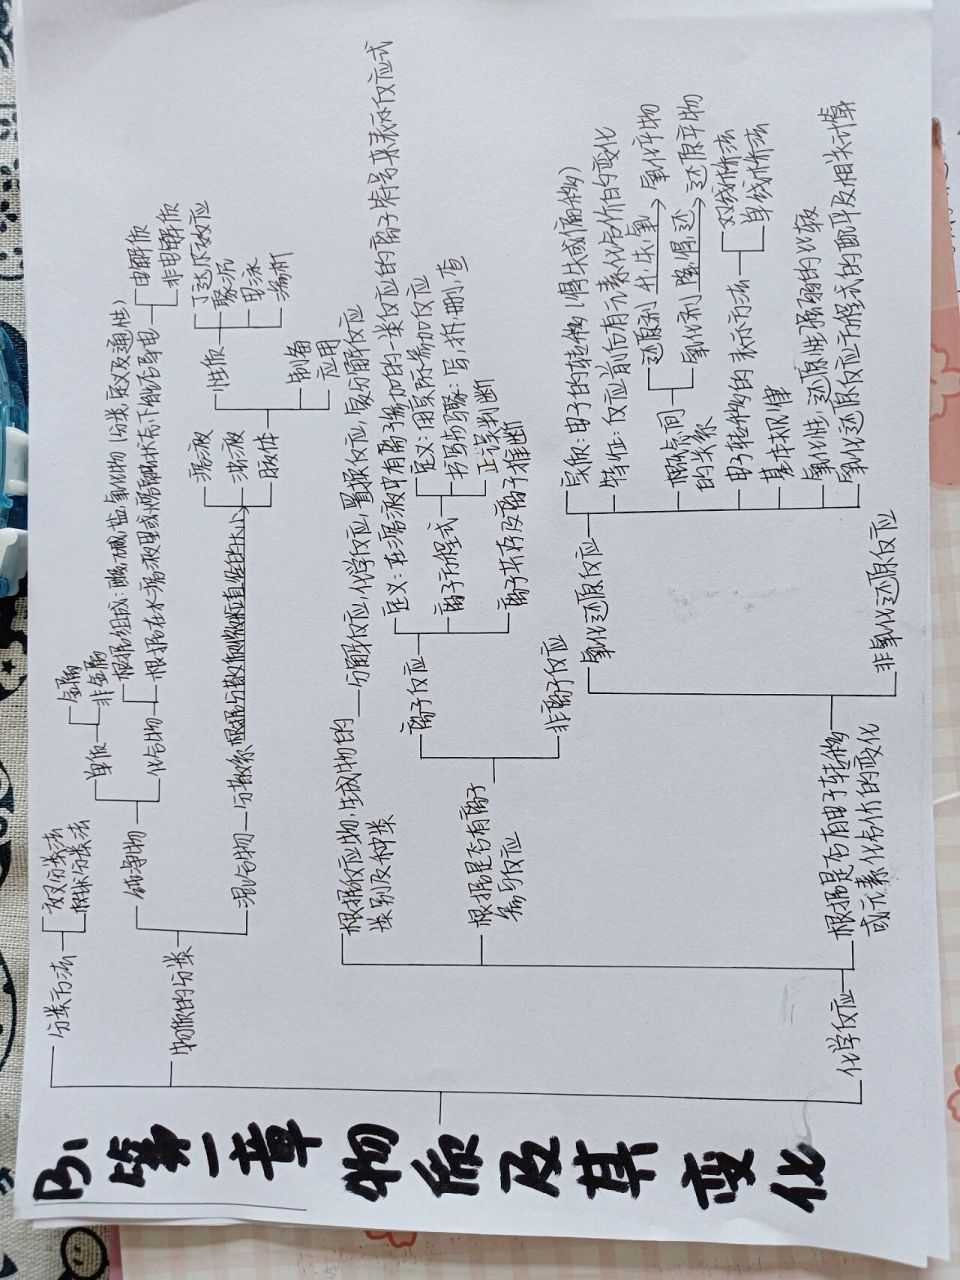 B1 第一章 物质及其变化
分类方法
交叉分类法
树状分类法
物质的分类
纯净物
单质
金属
非金属
化合物
根据组成:酸,碱,盐,氧化物(分类,定义及通性)
根据在水溶液里或熔融状态下能否导电
电解质
非电解质
混合物
分散系
根据分散质微粒直径大小
溶液
浊液
胶体
性质
丁达尔效应
聚沉
电泳
渗析
制备
应用
化学反应
根据反应物,生成物的
类别及种类
分解反应,化学反应,置换反应,复分解反应
根据是否有离子
参与反应
离子反应
定义:在溶液中有离子参加的一类反应
离子方程式
定义:用实际参加反应的离子符号来表示反应式
书写步骤:写,拆,删,查
正误判断
离子共存及离子推断
非离子反应
根据是否有电子转移
或元素化合价的变化
氧化还原反应
实质:电子的转移(得失或偏移)
特征:反应前后有元素化合价的变化
概念间
的关系
还原剂 升失氧 氧化产物
氧化剂 降得还 还原产物
电子转移的表示方法
双线桥法
单线桥法
基本规律
氧化性,还原性强弱的比较
氧化还原反应方程式的配平及相关计算
非氧化还原反应